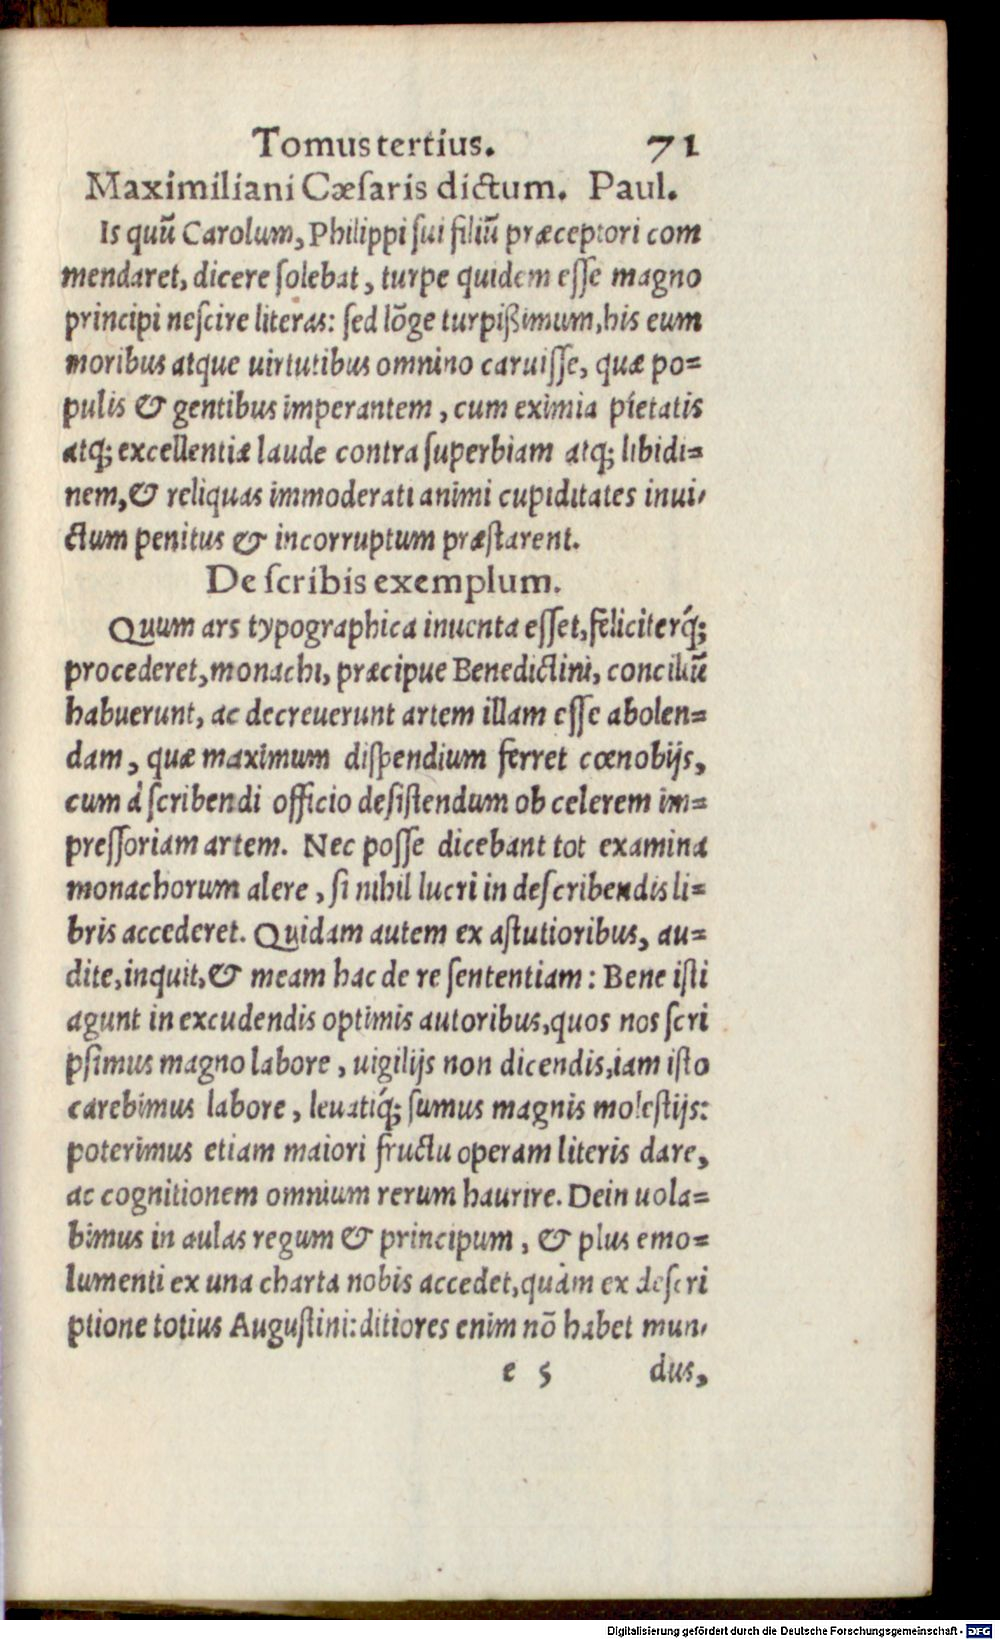 Tomus tertius. 71
Maximiliani Cæſaris dictum. Paul.
Is quũ Carolum, Philippi ſui filiũ præceptori com
mendaret, dicere ſolebat, turpe quidem eſſe magno
principi neſcire literas: ſed lõge turpißimum, his eum
moribus atque uirtutibus omnino caruiſſe, quæ po=
pulis & gentibus imperantem, cum eximia pietatis
atq; excellentiæ laude contra ſuperbiam atq; libidi=
nem, & reliquas immoderati animi cupiditates inui-
ctum penitus & incorruptum præſtarent.
De ſcribis exemplum.
Quum ars typographica inuenta eſſet, feliciterq́;
procederet, monachi, præcipue Benedictini, conciliũ
habuerunt, ac decreuerunt artem illam eſſe abolen=
dam, quæ maximum diſpendium ferret cœnobijs,
cum à ſcribendi officio deſiſtendum ob celerem im=
preſſoriam artem. Nec poſſe dicebant tot examina
monachorum alere, ſi nihil lucri in deſcribendis li=
bris accederet. Quidam autem ex aſtutioribus, au=
dite, inquit, & meam hac de re ſententiam: Bene iſti
agunt in excudendis optimis autoribus, quos nos ſcri
pſimus magno labore, uigilijs non dicendis, iam iſto
carebimus labore, leuatiq́; ſumus magnis moleſtijs:
poterimus etiam maiori fructu operam literis dare,
ac cognitionem omnium rerum haurire. Dein uola=
bimus in aulas regum & principum, & plus emo=
lumenti ex una charta nobis accedet, quàm ex deſcri
ptione totius Auguſtini: ditiores enim nõ habet mun-
e 5 dus,
Digitalisierung gefördert durch die Deutsche Forschungsgemeinschaft - DFG